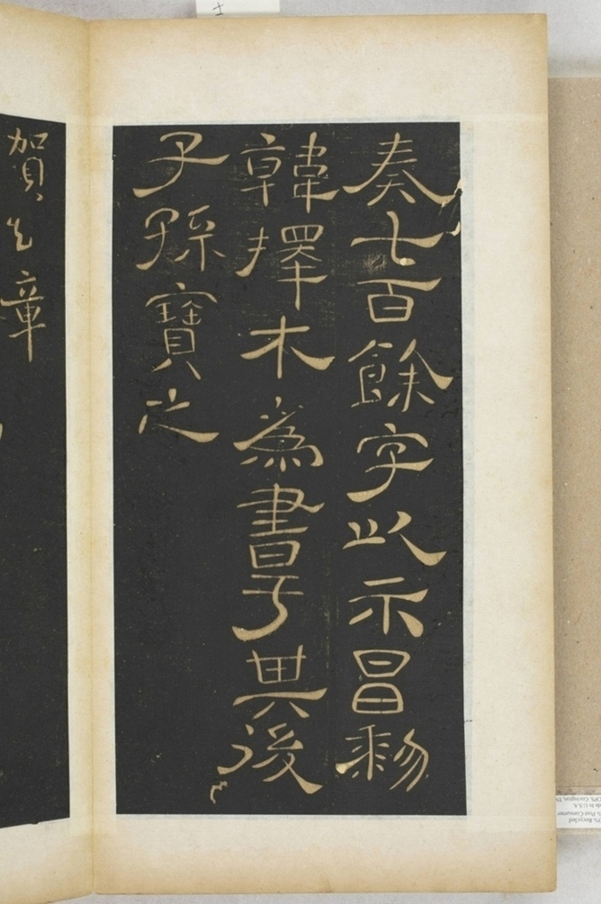 奏七百餘字以示昌黎
韓擇木爲書予畀後
子孫寶之
賀知章